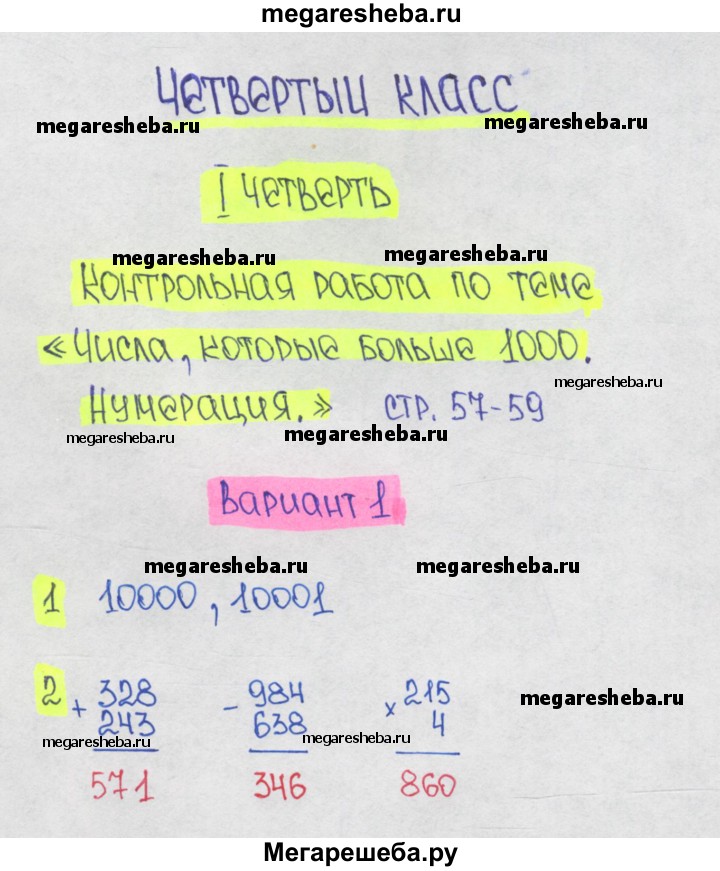 megaresheba.ru
Четвертый класс
megaresheba.ru megaresheba.ru
I четверть
megaresheba.ru megaresheba.ru
Контрольная работа по теме
«Числа, которые больше 1000.
megaresheba.ru
Нумерация.» стр. 57-59
megaresheba.ru megaresheba.ru
Вариант 1
megaresheba.ru megaresheba.ru
1 10000, 10001
2 + 328 - 984 × 215
megaresheba.ru
243 638 4
megaresheba.ru megaresheba.ru
571 346 860
Мегарешеба.ру